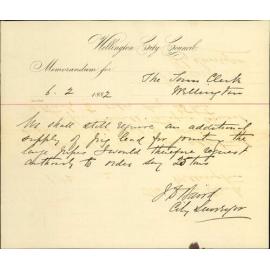 Wellington City Council
Memorandum for
The Town Clerk
6. 2 1882 Wellington
We shall still require an additional
supply of pig lead for jointing the
large pipes I would therefore request
authority to order say 20 tons
J D Baird
City Surveyor